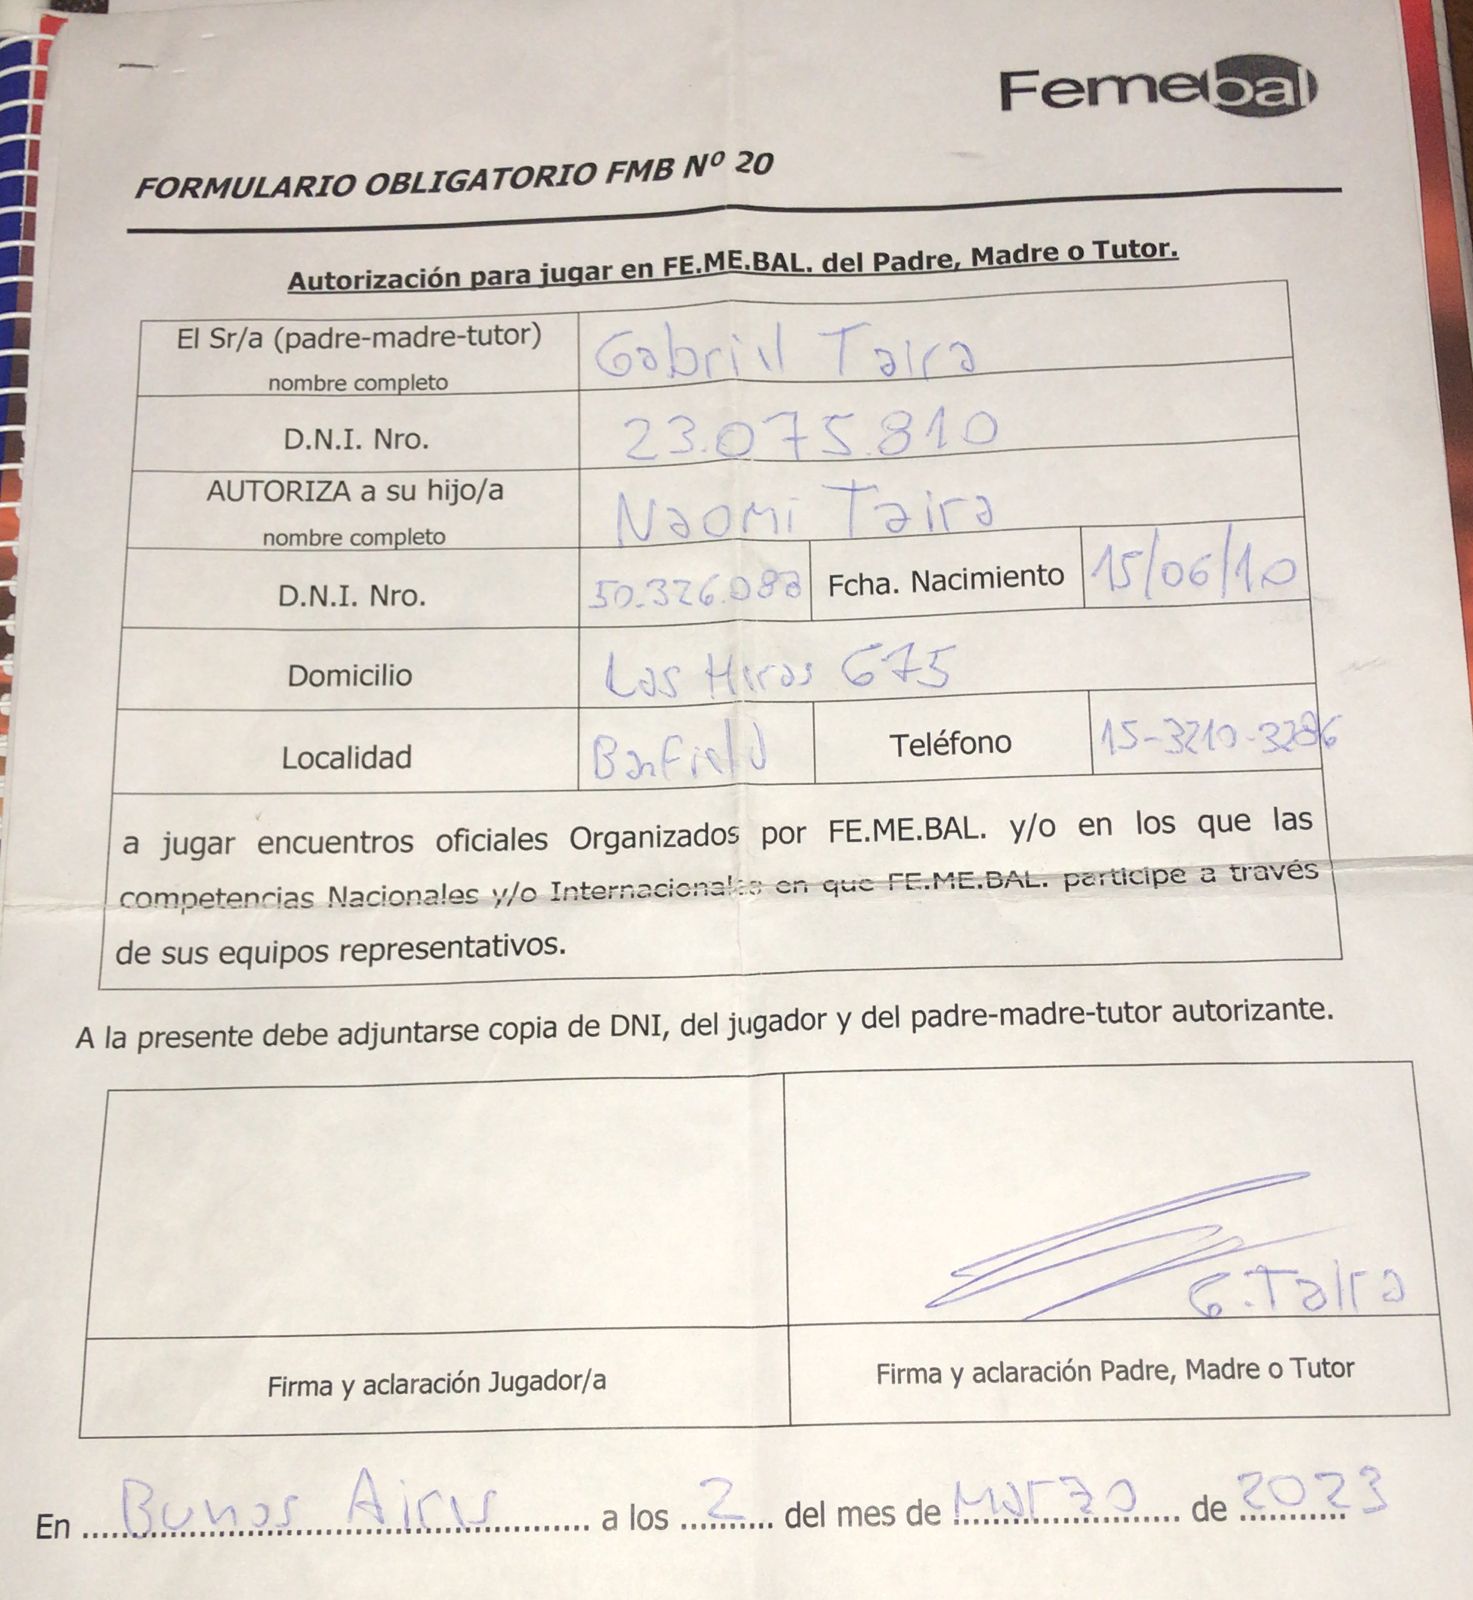 Femebal
FORMULARIO OBLIGATORIO FMB Nº 20
Autorización para jugar en FE.ME.BAL. del Padre, Madre o Tutor.
El Sr/a (padre-madre-tutor)
nombre completo
Gabriel Taira
D.N.I. Nro.
23.075.810
AUTORIZA a su hijo/a
nombre completo
Naomi Taira
D.N.I. Nro.
Fcha. Nacimiento
15/06/10
Domicilio
Las Heras 675
Localidad
Banfield
Teléfono
15-3210-3286
a jugar encuentros oficiales Organizados por FE.ME.BAL. y/o en los que las
competencias Nacionales y/o Internacionales en que FE.ME.BAL. participe a través
de sus equipos representativos.
A la presente debe adjuntarse copia de DNI, del jugador y del padre-madre-tutor autorizante.
G. Taira
Firma y aclaración Jugador/a
Firma y aclaración Padre, Madre o Tutor
En Buenos Aires a los 2 del mes de Marzo de 2023